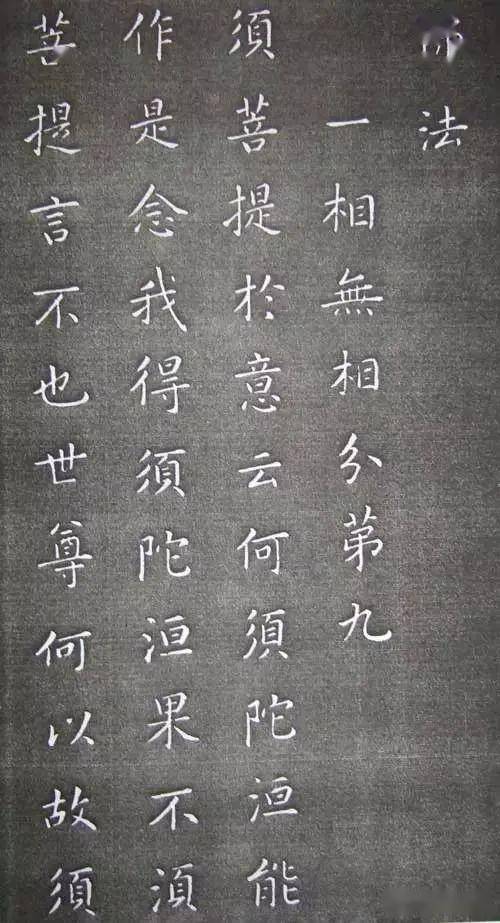 法
一相無相分苐九
須菩提於意云何須陀洹能
作是念我得須陀洹果不湏
菩提言不也世尊何以故須